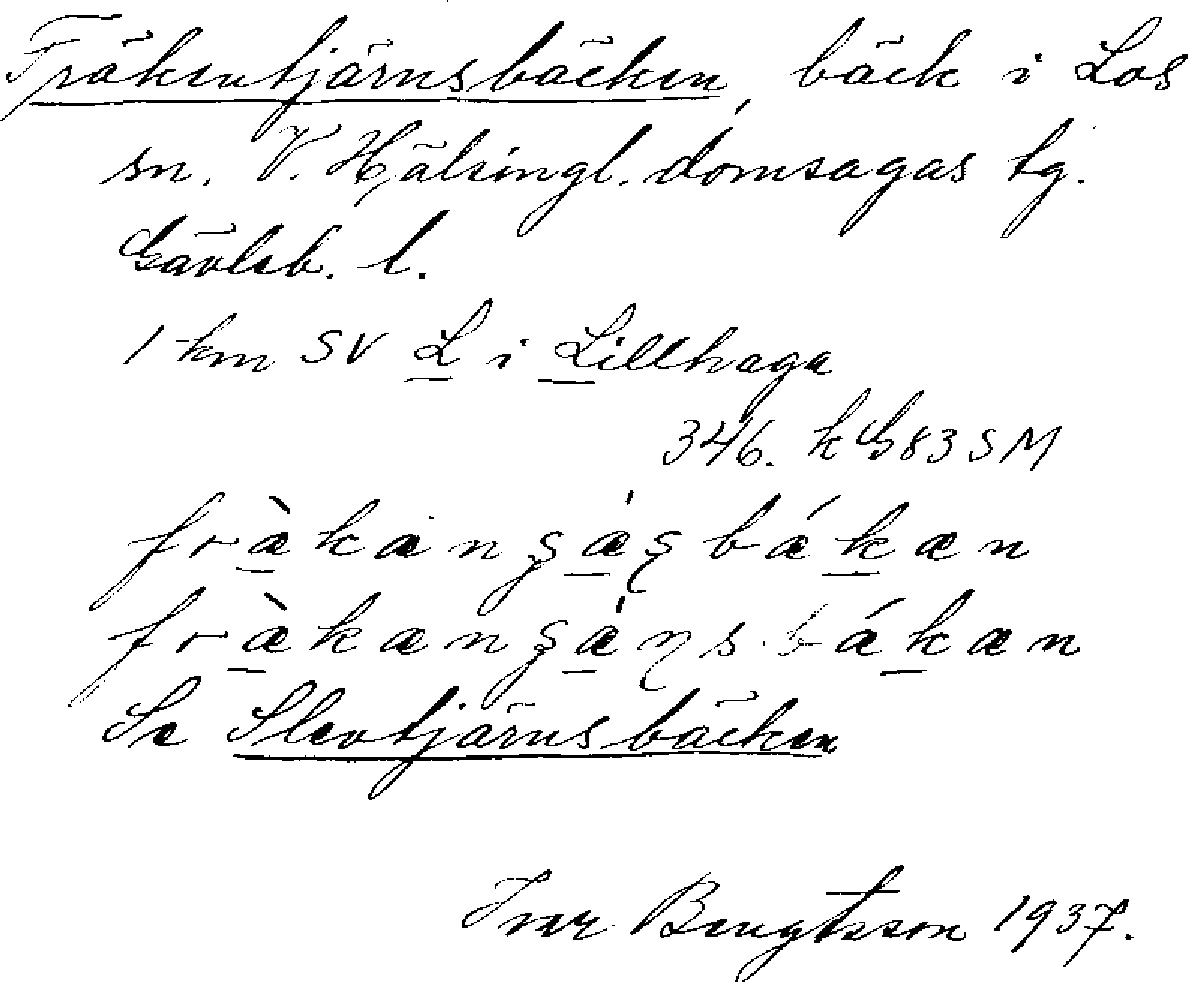 Fräkentjärnsbäcken, bäck i Los
sn. V. Hälsingl. domsagas tg.
Gävleb. l.
1 km SV L i Lillhaga
346. k G 83 SM
fràkangáşbákan
fràkangáņs bákan
Se Slevtjärnsbäcken
Ivar Bengtsson 1937.